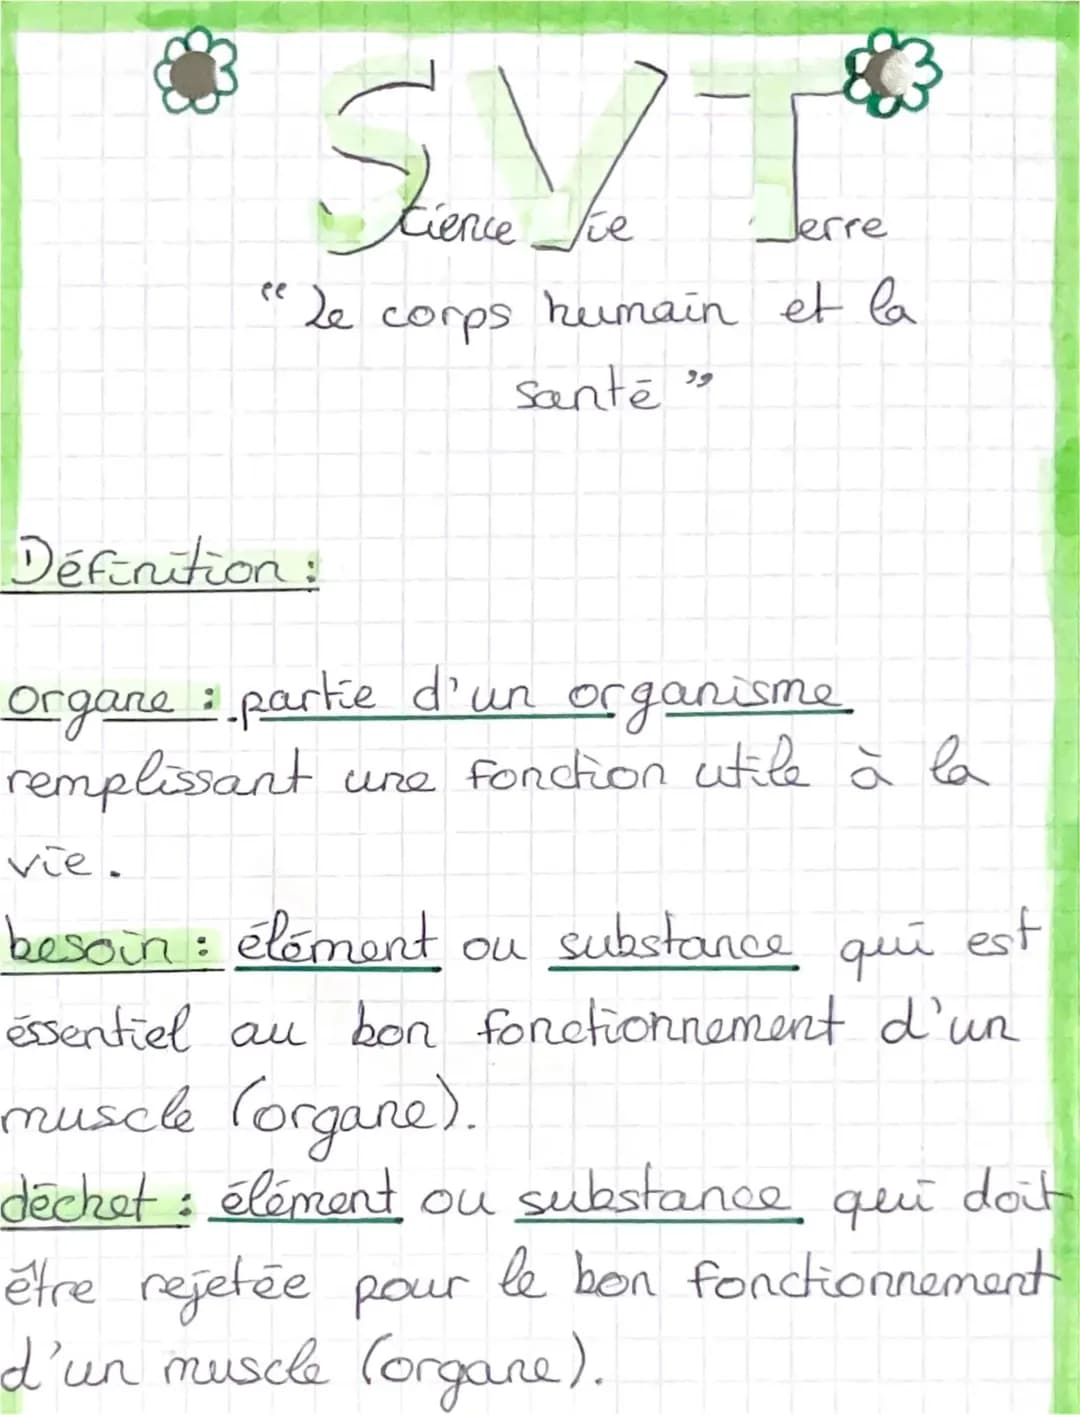 SVT
Science Vie Terre
"Le corps humain et la
santé"
Définition :
organe : partie d'un organisme
remplissant une fonction utile à la
vie.
besoin : élément ou substance qui est
éssentiel au bon fonctionnement d'un
muscle (organe).
déchet : élément ou substance qui doit
être rejetée pour le bon fonctionnement
d'un muscle (organe).